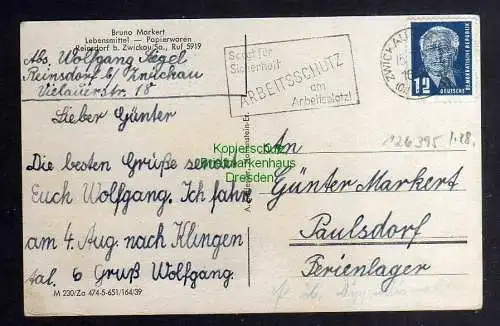 Bruno Markert
Lebensmittel — Papierwaren
Reinsdorf b. Zwickau/Sa., Ruf 5919
Abs. Wolfgang Siegel
Reinsdorf b/ Zwickau
Vielauerstr. 18
Lieber Günter
Die besten Grüße sendet
Euch Wolfgang. Ich fahre
am 4. Aug. nach Klingen
tal. 6 Gruß Wolfgang.
M 230/Za 474-5-651/164/39
Sorgt für
Sicherheit
ARBEITSSCHUTZ
am
Arbeitsplatz!
ZWICKAU
12
DEUTSCHE DEMOKRATISCHE REPUBLIK
126395 1.28.
An
Günter Markert
Paulsdorf
Ferienlager
Kopierschutz
Briefmarkenhaus
Dresden